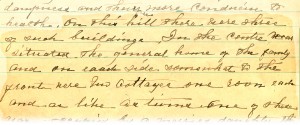 dampness and therefore more conducive to
health. On this hill there were three
of such buildings. In the centre was
situated the general home of the family
and on each side, somewhat to the
front were two cottages one room each
and as like as twins one of these